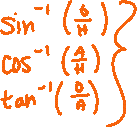 sin⁻¹ (O/H)
cos⁻¹ (A/H)
tan⁻¹ (O/A)